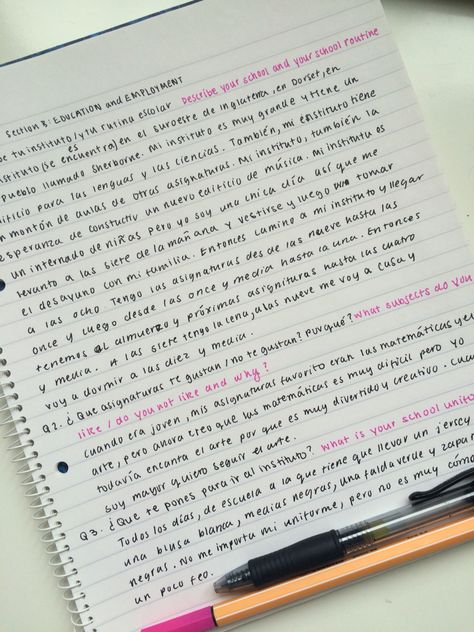 Section 3: EDUCATION and EMPLOYMENT
be tu instituto/y tu rutina escolar Describe your school and your school routine
stituto (se es encuentra) en el suroeste de Inglaterra, en Dorset, en
pueblo llamado Sherborne. Mi instituto es muy grande y tiene un
ificio para las lenguas y las ciencias. También, mi enstituto tiene
n montón de aulas de otras asignaturas. Mi instituto, también la
esperanza de constuctiv un nuevo edificio de música. Mi instituto es
un internado de niñas pero yo soy una chica día así que me
levanto a las siete de la mañana y vestirse y luego tomar
el desayuno con mi familia. Entonces camino a mi instituto y llegar
a las ocho. Tengo las asignaturas desde las nueve hasta las
once y luego desde las once y media hasta la una. Entonces
tenemos el almuerzo y próximas asignituras hasta las cuatro
y media. A las siete tengo la cena, a las nueve me voy a casa y
voy a dormir a las diez y media.
Q2. ¿Que asignaturas te gustan / no te gustan? Porqué? What subjects do you
like / do you not like and why?
cuando era joven, mis asignaturas favorito eran las matemáticas y el
arte, pero ahora creo que las matemáticas es muy difícil pero yo
todavía encanta el arte por que es muy divertido y creativo. Cuan
soy mayor quiero seguir el arte.
Q3. ¿Que te pones para ir al instituto? What is your school unifo
Todos los días, de escuela a la que tiene que llevar un jersey
una blusa blanca, medias negras, una falda verde y zapa
negras. No me importa mi uniforme, pero no es muy cómo
un poco feo.